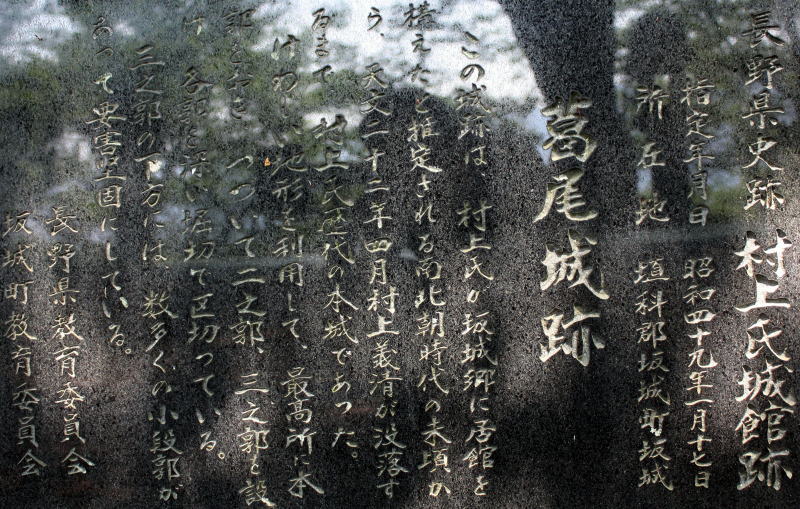 長野県史跡 村上氏城館跡
指定年月日 昭和四十九年一月十七日
所在地 埴科郡坂城町坂城
葛尾城跡
この城跡は、村上氏が坂城郷に居館を
構えたと推定される南北朝時代の末頃か
ら、天文二十二年四月村上義清が没落す
るまで、村上氏歴代の本城であった。
けわしい地形を利用して、最高所に本
郭をおき、つづいて二之郭、三之郭と設
け、各郭を深い堀切で区切っている。
三之郭の下方には、数多くの小段郭が
あって要害堅固にしている。
長野県教育委員会
坂城町教育委員会